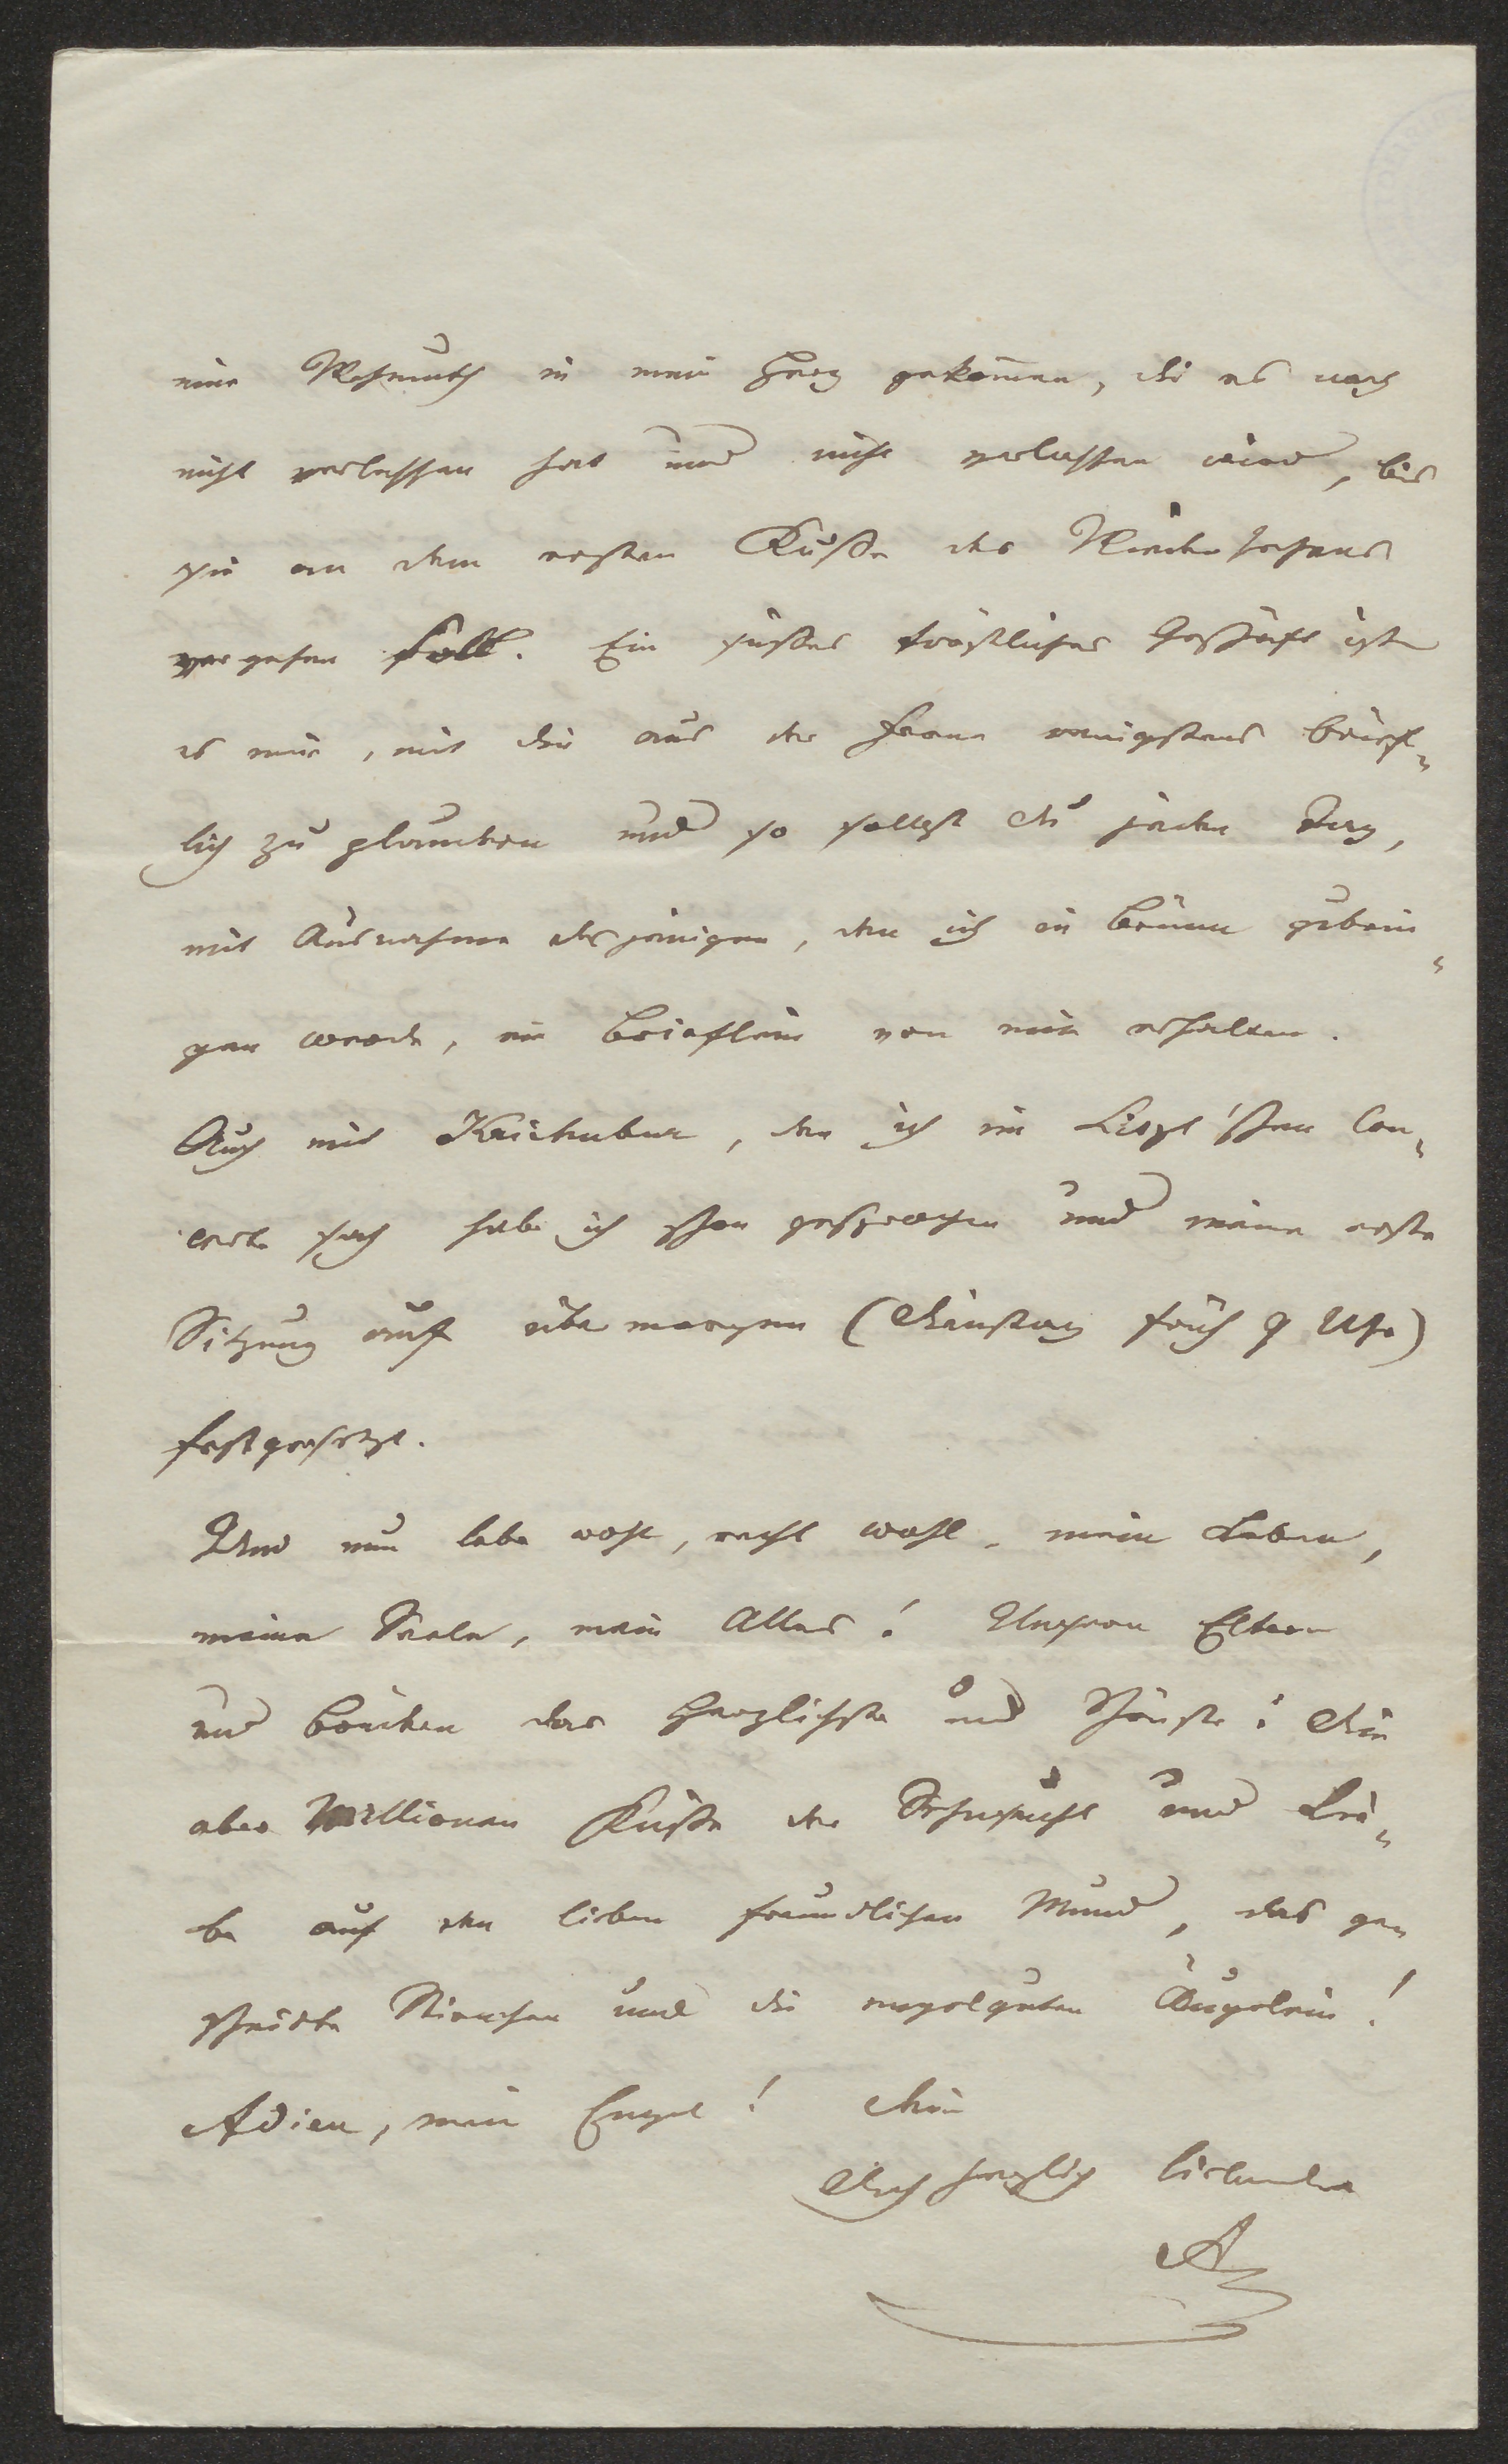 eine Wehmuth in mein Herz gekommen, die es noch
nicht verlassen hat und nicht verlassen wird, bis
sie an dem ersten Kuße des Wiedersehens
vergehen soll. Ein süßes tröstliches Geschäft ist
es mir, mit dir aus der Ferne wenigstens brief-
lich zu plaudern und so sollst du jeden Tag,
mit Ausnahme desjenigen, den ich in Brünn zubrin-
gen werde, ein Brieflein von mir erhalten.
Auch mit Kriehuber, den ich im Liszt'schen Con-
certe sah habe ich schon gesprochen und meine erste
Sitzung auf übermorgen (Dienstag früh 9 Uhr)
festgesetzt.
Und nun lebe wohl, recht wohl, mein Leben,
meine Seele, mein Alles! Unseren Eltern
und Brüdern das Herzlichste und Schönste; Dir
aber Millionen Küße der Sehnsucht und Lie-
be auf den lieben freundlichen Mund, das ge-
scheidte Stirnchen und die engelguten Äugelein!
Adieu, mein Engel! Dein
Dich herzlich liebender
A